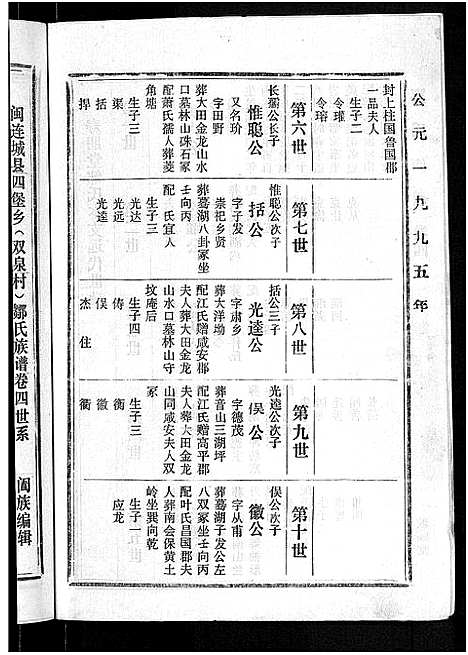 公元一九九五年
封上柱国鲁国郡
一品夫人
生子二
令瓘
令瑢
第六世
长孺公长子
惟聪公
又名玠
字田野
葬大田金龙山水
口墓林山硃石冢
配萧氏孺人葬菱
角塘
生子三
渠
括
捍
第七世
惟聪公次子
括公
字子发
崇祀乡贤
葬葛湖八卦冢坐
壬向丙
配 氏宜人
生子三
光达
光远
光逵
第八世
括公三子
光逵公
字肃乡
葬大洋坳
配江氏赠咸安郡
夫人葬大田金龙
山水口墓林山守
坟庵后
生子四
俦
俣
杰
住
第九世
光逵公次子
俣公
字德茂
葬音山三湖坪
配江氏赠高平郡
夫人葬大田金龙
山同咸安夫人双
冢
生子三
衡
徽
衢
第十世
俣公次子
徽公
字从甫
葬葛湖子发公左
八双冢坐壬向丙
配叶氏昌国郡夫
人葬南会保黄土
岭坐巽向乾
生子一
应龙
闽连城县四堡乡（双泉村）邹氏族谱卷四世系
阖族编辑